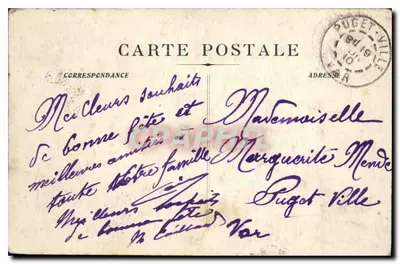 CARTE POSTALE
CORRESPONDANCE
ADRESSE
PUGET-VILLE
VAR
Meilleurs souhaits
de bonne fête et
meilleures amitiés à
toute votre famille
Meilleurs souhaits
de bonne fête
Mademoiselle
Marguerite
Puget Ville
Var